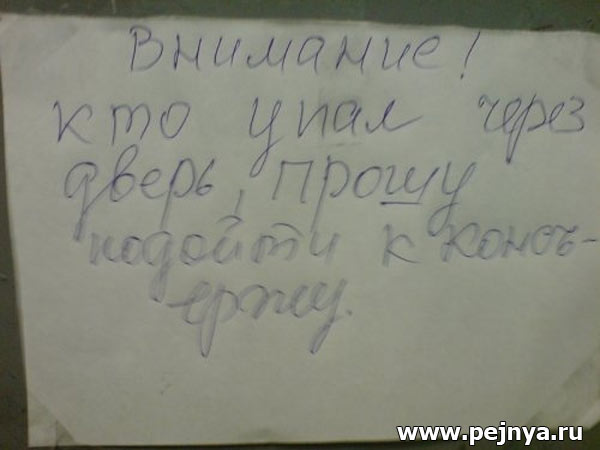 Внимание!
кто упал через
дверь, прошу
подойти к консъ-
ержу.
www.pejnya.ru